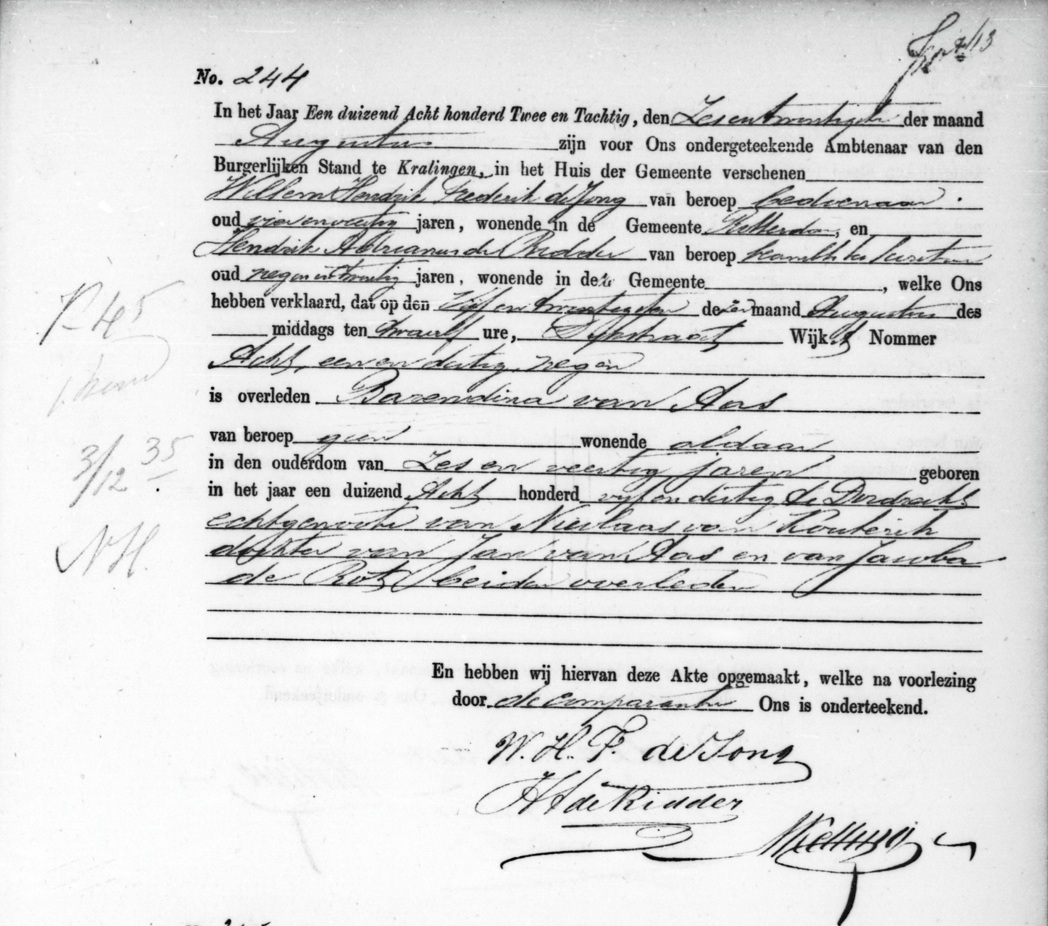 No. 244
In het Jaar Een duizend Acht honderd Twee en Tachtig, den Zesentwintigsten der maand
Augustus zijn voor Ons ondergeteekende Ambtenaar van den
Burgerlijken Stand te Kralingen, in het Huis der Gemeente verschenen
Willem Hendrik Frederik de Jong van beroep bedienaar
oud vierenveertig jaren, wonende in de Gemeente Rotterdam, en
Hendrik Adrianus de Ridder van beroep
oud negen en twintig jaren, wonende in deze Gemeente, welke Ons
hebben verklaard, dat op den Vijf en twintigsten dezer maand Augustus des
middags ten twaalf ure, Wijk Nommer
Acht, een en dertig, negen
is overleden Barendina van Aas
van beroep geen wonende aldaar
in den ouderdom van Zes en veertig jaren geboren
in het jaar een duizend Acht honderd vijf en dertig te Dordrecht
echtgenoote van Nicolaas van
dochter van Jan van Aas en van Jacoba
de Rot, beiden overleden
En hebben wij hiervan deze Akte opgemaakt, welke na voorlezing
door de comparanten Ons is onderteekend.
W. H. F. de Jong
HA de Ridder
45
3/12 35
NH.